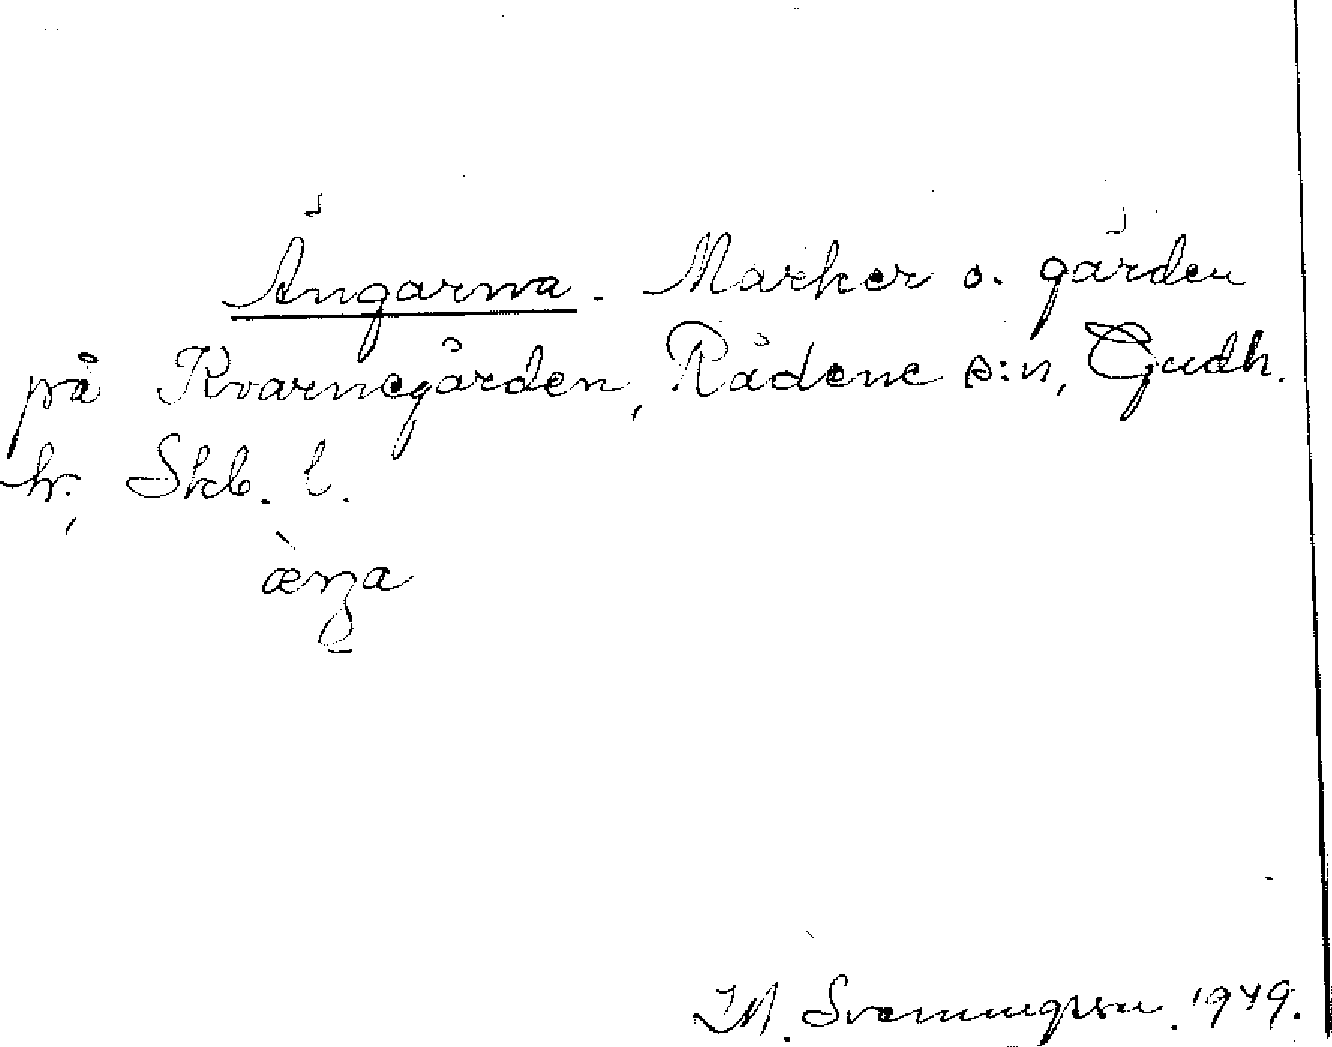 Ängarna. Marker o. gärden
på Kvarnegården, Rådene s:n, Gudh.
hr, Skb. l.
æ̀ŋa
I.M. Svenungsson. 1949.